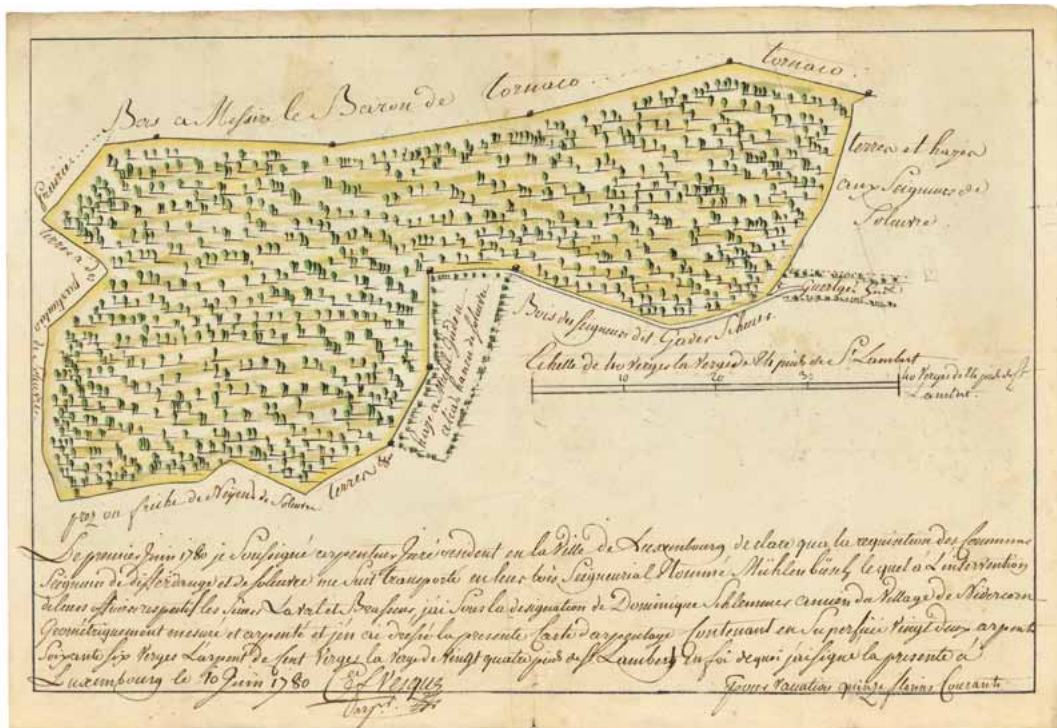 Bois a Messire le Baron de tornaco tornaco
terres et hayes
aux Seigneurs de
Soleuvre
terres a
particuliers de Soleuvre
Bois des Seigneurs dit Gades
haye a Michel
alias de Soleuvre
terres
prez ou friche de de Soleuvre
Echelle de 40 verges la verge de 24 pieds de St Lambert
10 20 30
40 Verges de 24 pieds de St
Lambert
Le premier Juin 1780 je Soussigné arpenteur Juré resident en la Ville de Luxembourg declare qua la requisition des Communs
Seigneurs de differdange et de soleuvre me suis transporté en leur bois Seigneurial Nommé Mühlenbusch lequel à L'intervention
de leurs officiers respectifs les Sieurs Laval et Brasseur, jai sous la designation de Dominique Schlemmer ancien du Village de Nidercorn
Geometriquement mesuré et arpenté et j'en ai dressée la presente Carte d'arpentage Contenant en Superficie Vingt deux arpents
Soixante six Verges L'arpent de Cent Verges la Verge de Vingt quatre pieds de St Lambert En foi de quoi jai signé la presente à
Luxembourg le 10 Juin 1780
pour vacation quinze florins Courants